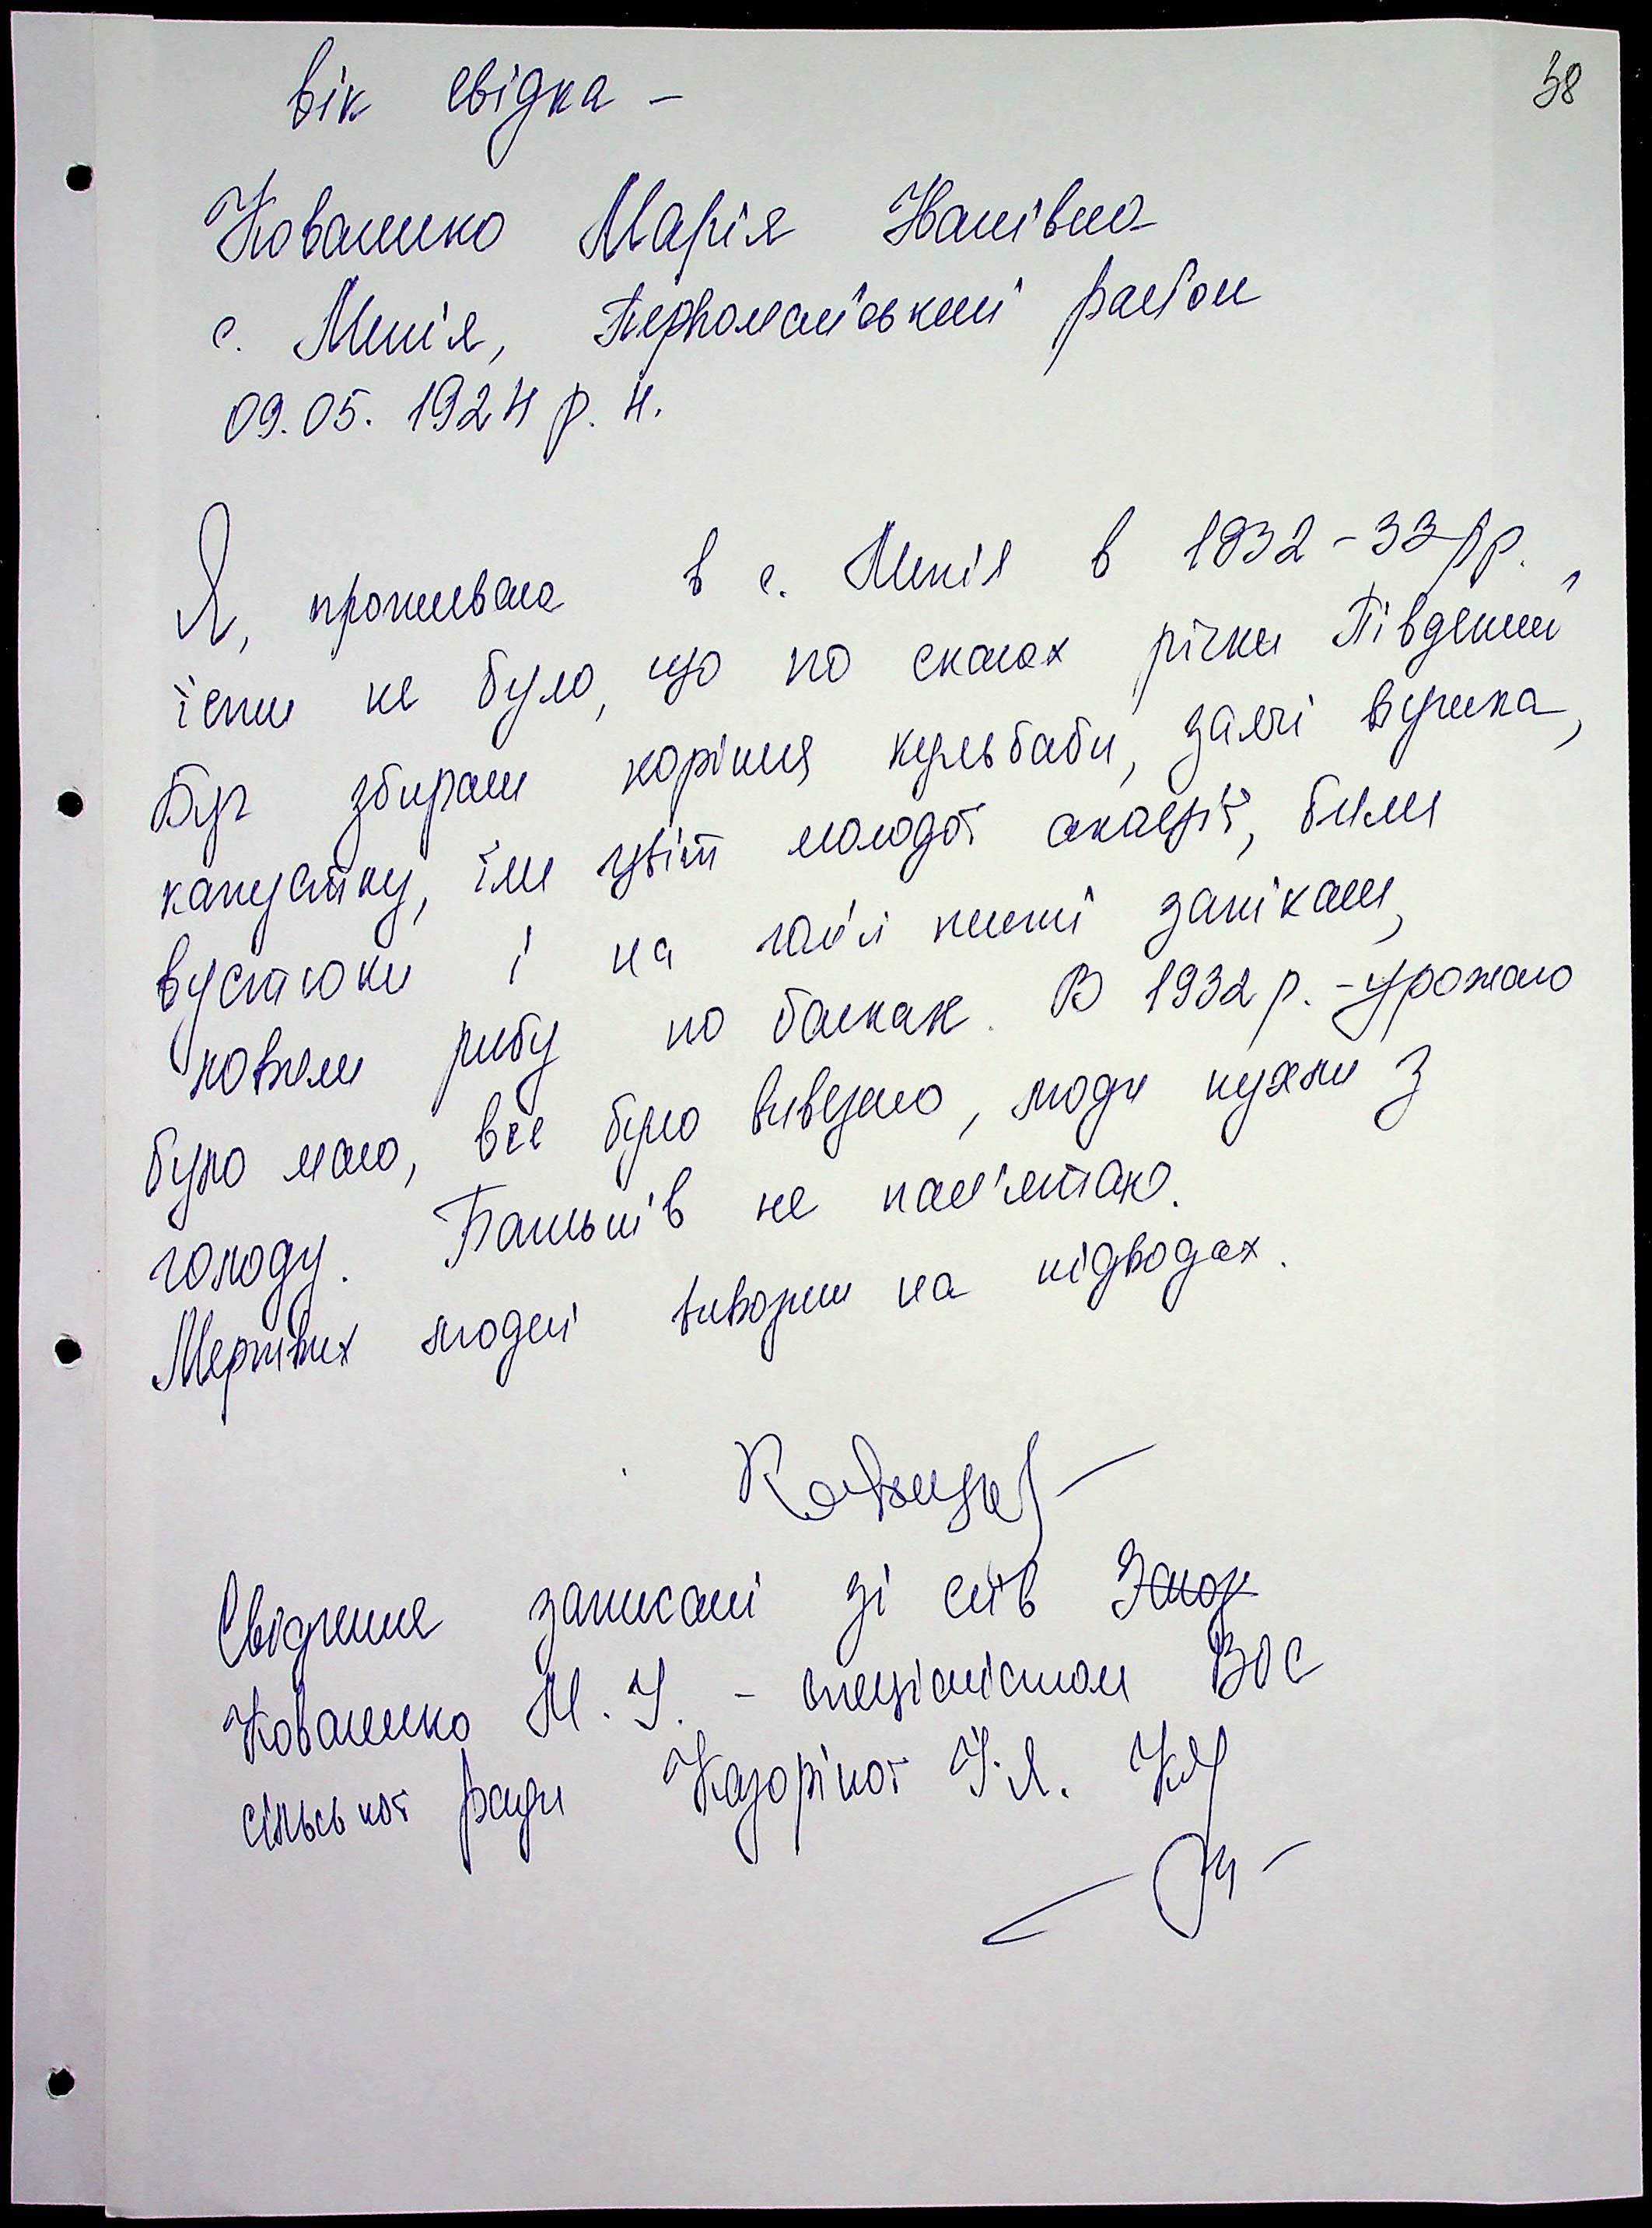 38
вік свідка –
Коваленко Марія Іванівна
с. Мигія, Первомайський район
09.05.1924 р. н.
Я, проживала в с. Мигія в 1932-33 рр.,
їсти не було, що по скалах річки Південий
Буг збирали коріння кульбаби, заячі вушка,
капустку, їли цвіт молодої акації, били
вустюки і на голій плиті запікали,
ловили рибу по балках. В 1932 р. - урожаю
було мало, все було вивезено, люди пухли з
голоду. Батьків не пам'ятаю.
Мертвих людей вивозили на підводах.
Свідчення записані зі слів
Коваленко М. І. – спеціалістом ВОС
сільської ради Казоріної І. Я.